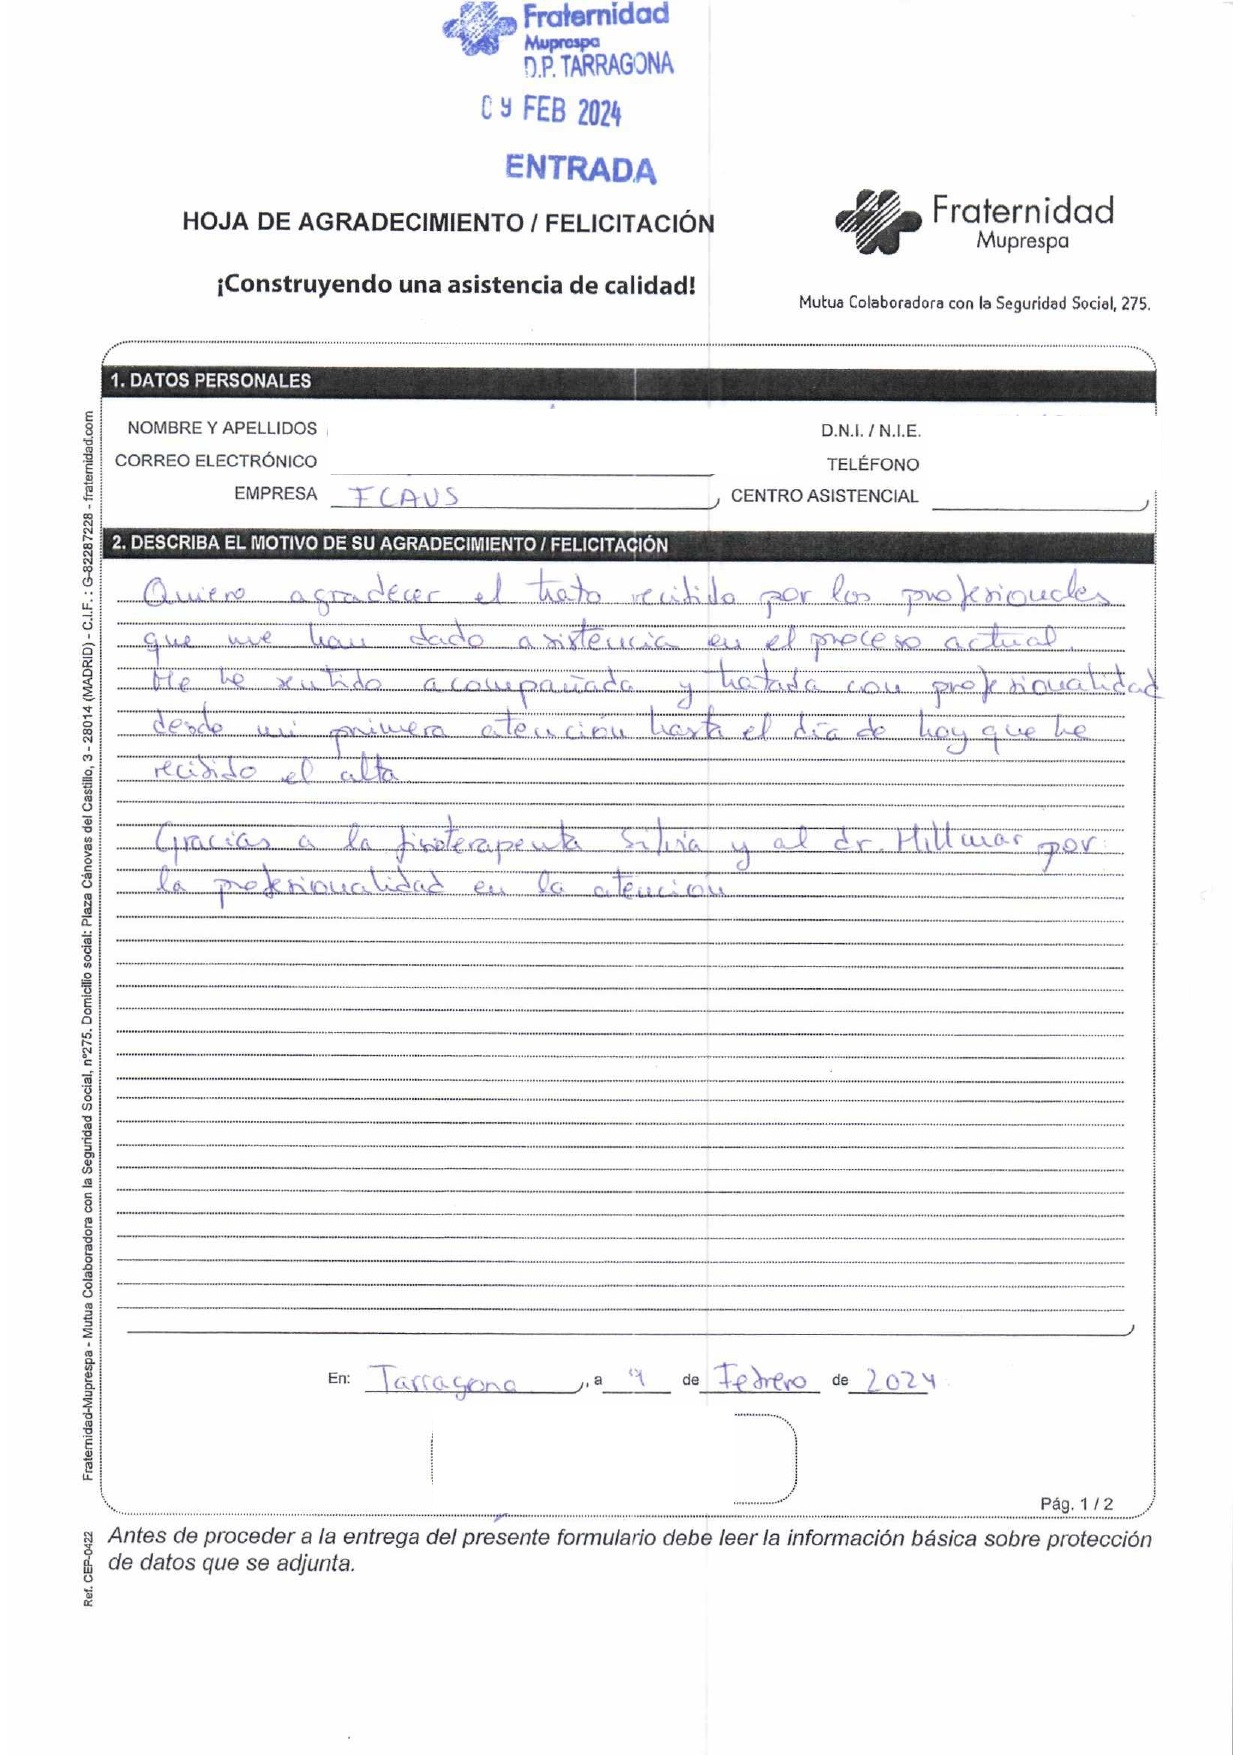 Fraternidad
Muprespa
D.P. TARRAGONA
09 FEB 2024
ENTRADA
HOJA DE AGRADECIMIENTO / FELICITACIÓN
¡Construyendo una asistencia de calidad!
Fraternidad
Muprespa
Mutua Colaboradora con la Seguridad Social, 275.
1. DATOS PERSONALES
NOMBRE Y APELLIDOS
D.N.I. / N.I.E.
CORREO ELECTRÓNICO
TELÉFONO
EMPRESA ICAUS
CENTRO ASISTENCIAL
2. DESCRIBA EL MOTIVO DE SU AGRADECIMIENTO / FELICITACIÓN
Quiero agradecer el trato recibido por los profesionales
que me han dado asistencia en el proceso actual.
Me he sentido acompañada y tratada con profesionalidad
desde mi primera atención hasta el día de hoy que he
recibido el alta
Gracias a la fisioterapeuta Silvia y al dr. Hillmar por
la profesionalidad en la atención
En: Tarragona, a 9 de Febrero de 2024
Pág. 1 / 2
Antes de proceder a la entrega del presente formulario debe leer la información básica sobre protección
de datos que se adjunta.
Fraternidad-Muprespa - Mutua Colaboradora con la Seguridad Social, nº275. Domicilio social: Plaza Cánovas del Castillo, 3 - 28014 (MADRID) - C.I.F. : G-82287228 - fraternidad.com
Ref. CEP-0422